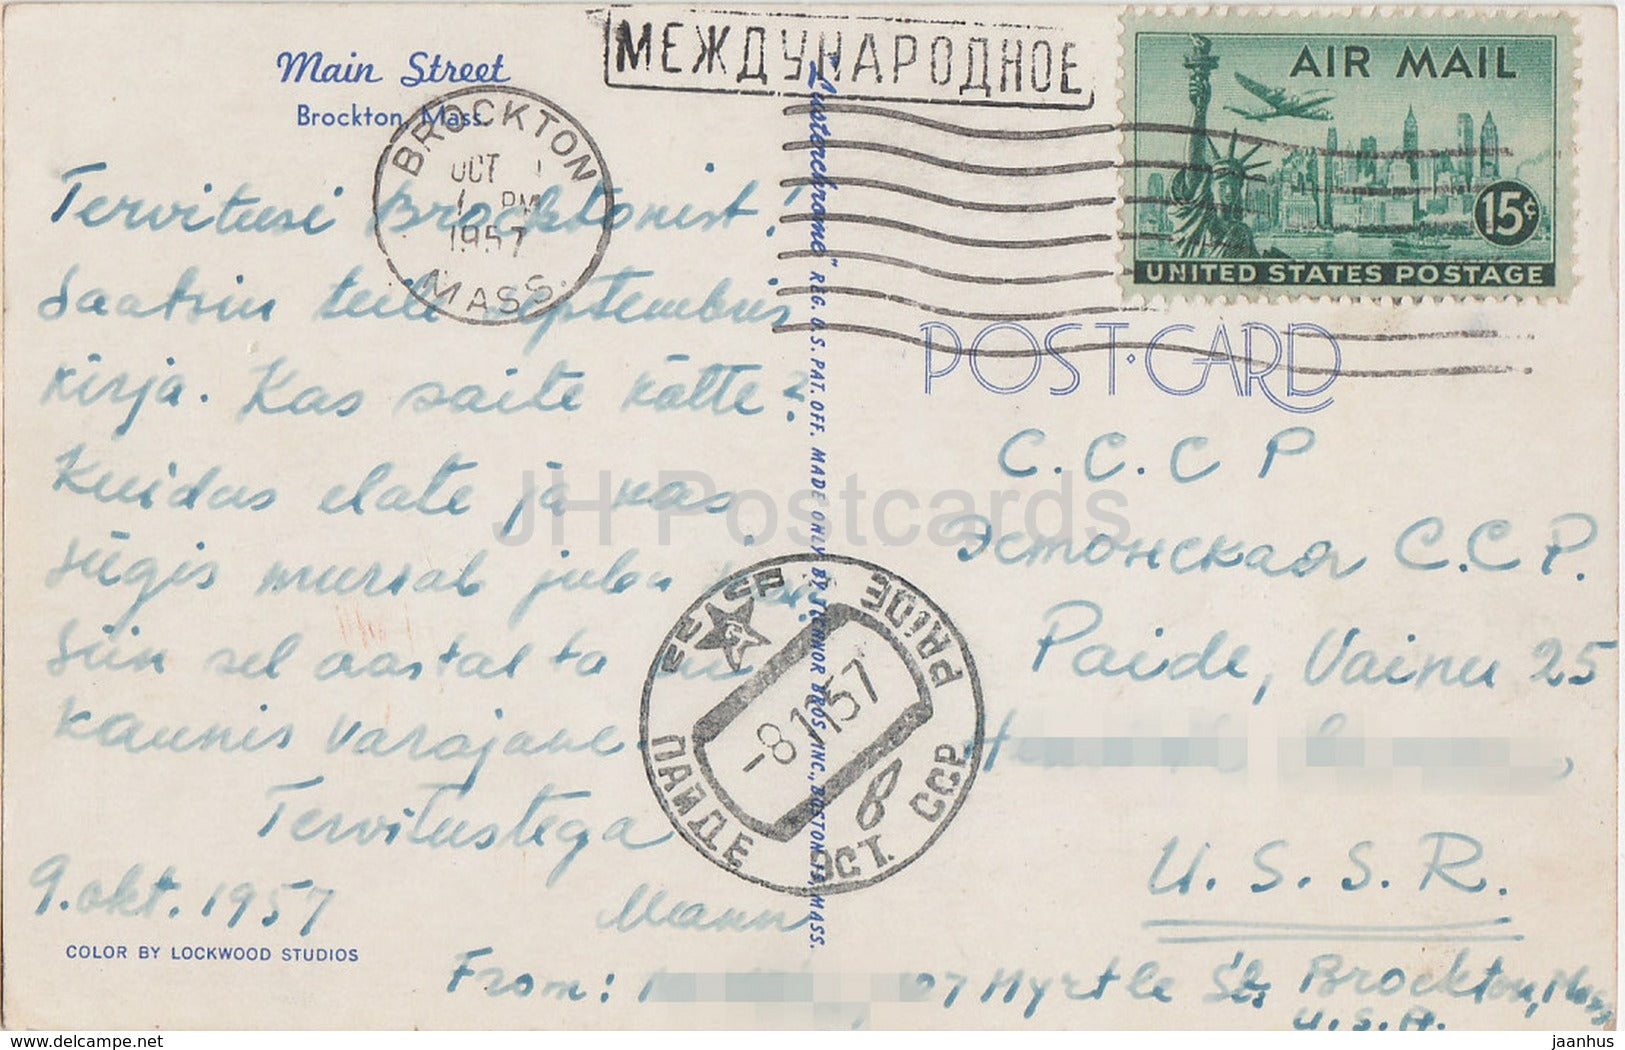 Main Street
Brockton, Mass.
Tervitusi Brocktonist!
Saatsin teile septembris
kirja. Kas saite kätte?
Kuidas elate ja kas
sügis murrab juba
Siin sel aastal ta
kaunis varajane.
Tervitustega
Mann
9. okt. 1957
COLOR BY LOCKWOOD STUDIOS
BROCKTON
OCT
1 PM
1957
MASS.
МЕЖДУНАРОДНОЕ
AIR MAIL
15¢
UNITED STATES POSTAGE
"Lusterchrome" REG. U.S. PAT. OFF. MADE ONLY BY TICHNOR BROS., INC., BOSTON 15, MASS.
POST·CARD
С.С.С Р
Эстонская С.С.Р.
Paide, Vainu 25
U.S.S.R.
PAIDE
-8 11 57
ПАЙДЕ ЭСТ. ССР
From: 07 Myrtle St, Brockton, Mass
U.S.A.
JH Postcards
delcampe.net
jaanhus